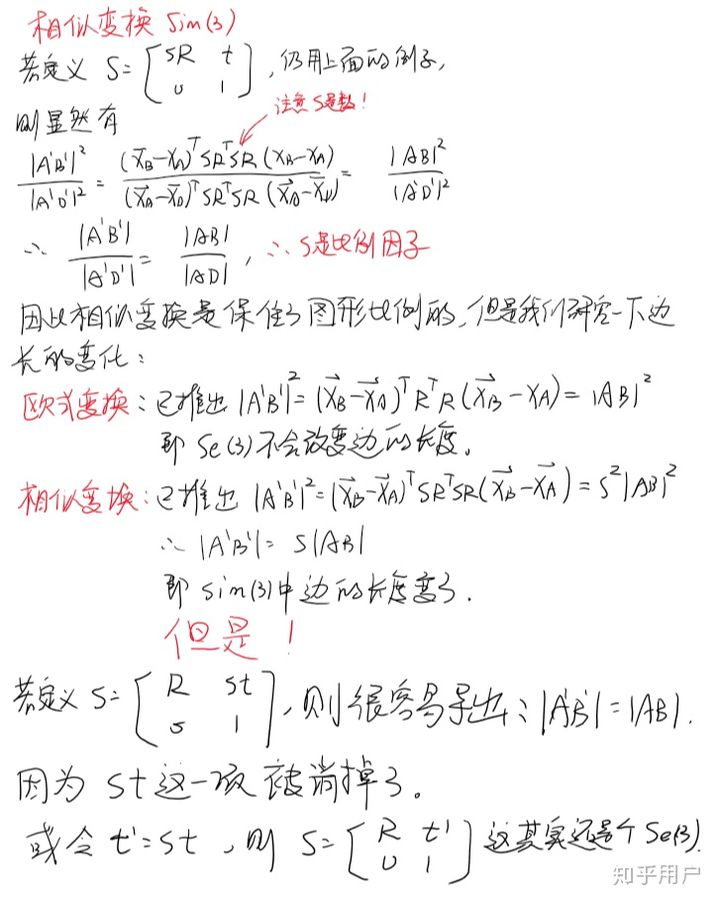 相似变换 Sim(3)
若定义 S=[sR t; 0 1], 仍用上面的例子,
则显然有
注意s是数!
|A'B'|²/|A'D'|² = (X⃗_B-X_A)ᵀSRᵀSR(X_B-X_A)/(X⃗_A-X⃗_D)ᵀSRᵀSR(X⃗_A-X⃗_D) = |AB|²/|A'D'|²
∴ |A'B'|/|A'D'| = |AB|/|AD|, ∴ S是比例因子
因此相似变换是保住了图形比例的,但是我们研究一下边
长的变化:
欧式变换: 已推出 |A'B'|²=(X⃗_B-X⃗_A)ᵀRᵀR(X⃗_B-X_A)=|AB|²
即 Se(3)不会改变边的长度。
相似变换: 已推出 |A'B'|²=(X⃗_B-X⃗_A)ᵀSRᵀSR(X⃗_B-X⃗_A)=S²|AB|²
∴ |A'B'|= S|AB|
即 sim(3)中边的长度变了.
但是!
若定义 S=[R st; 0 1], 则很容易导出: |A'B'|=|AB|.
因为 st这一项被消掉了。
或令 t'=st, 则 S=[R t'; 0 1] 这其实还是个 Se(3).
知乎用户